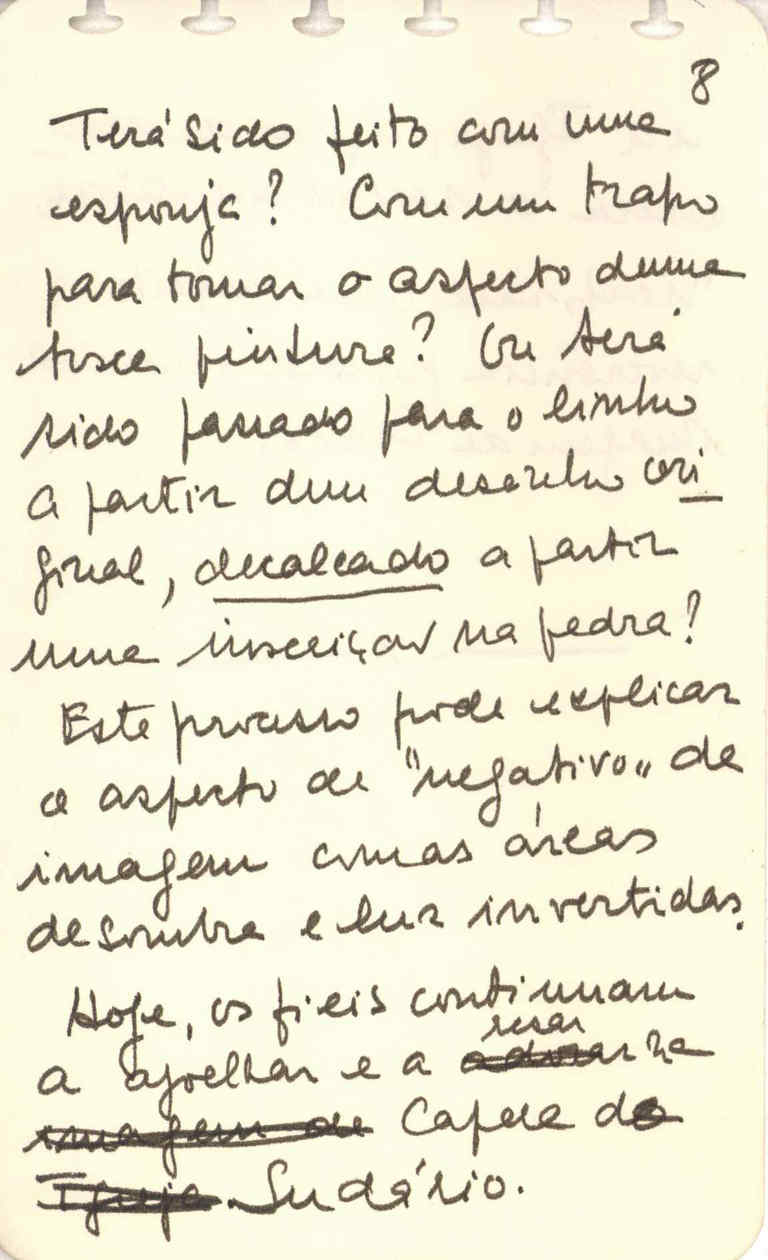 8
Terá sido feito com uma
esponja? Com um trapo
para tomar o aspecto duma
tosca pintura? Ou terá
sido passado para o linho
a partir dum desenho ori
ginal, decalcado a partir
uma inscrição na pedra?
Este processo pode explicar
o aspecto de "negativo" de
imagem com as áreas
de sombra e luz invertidas.
Hoje, os fieis continuam
a ajoelhar e a rezar na
adorar
imagem de Capela do
Igreja. Sudário.